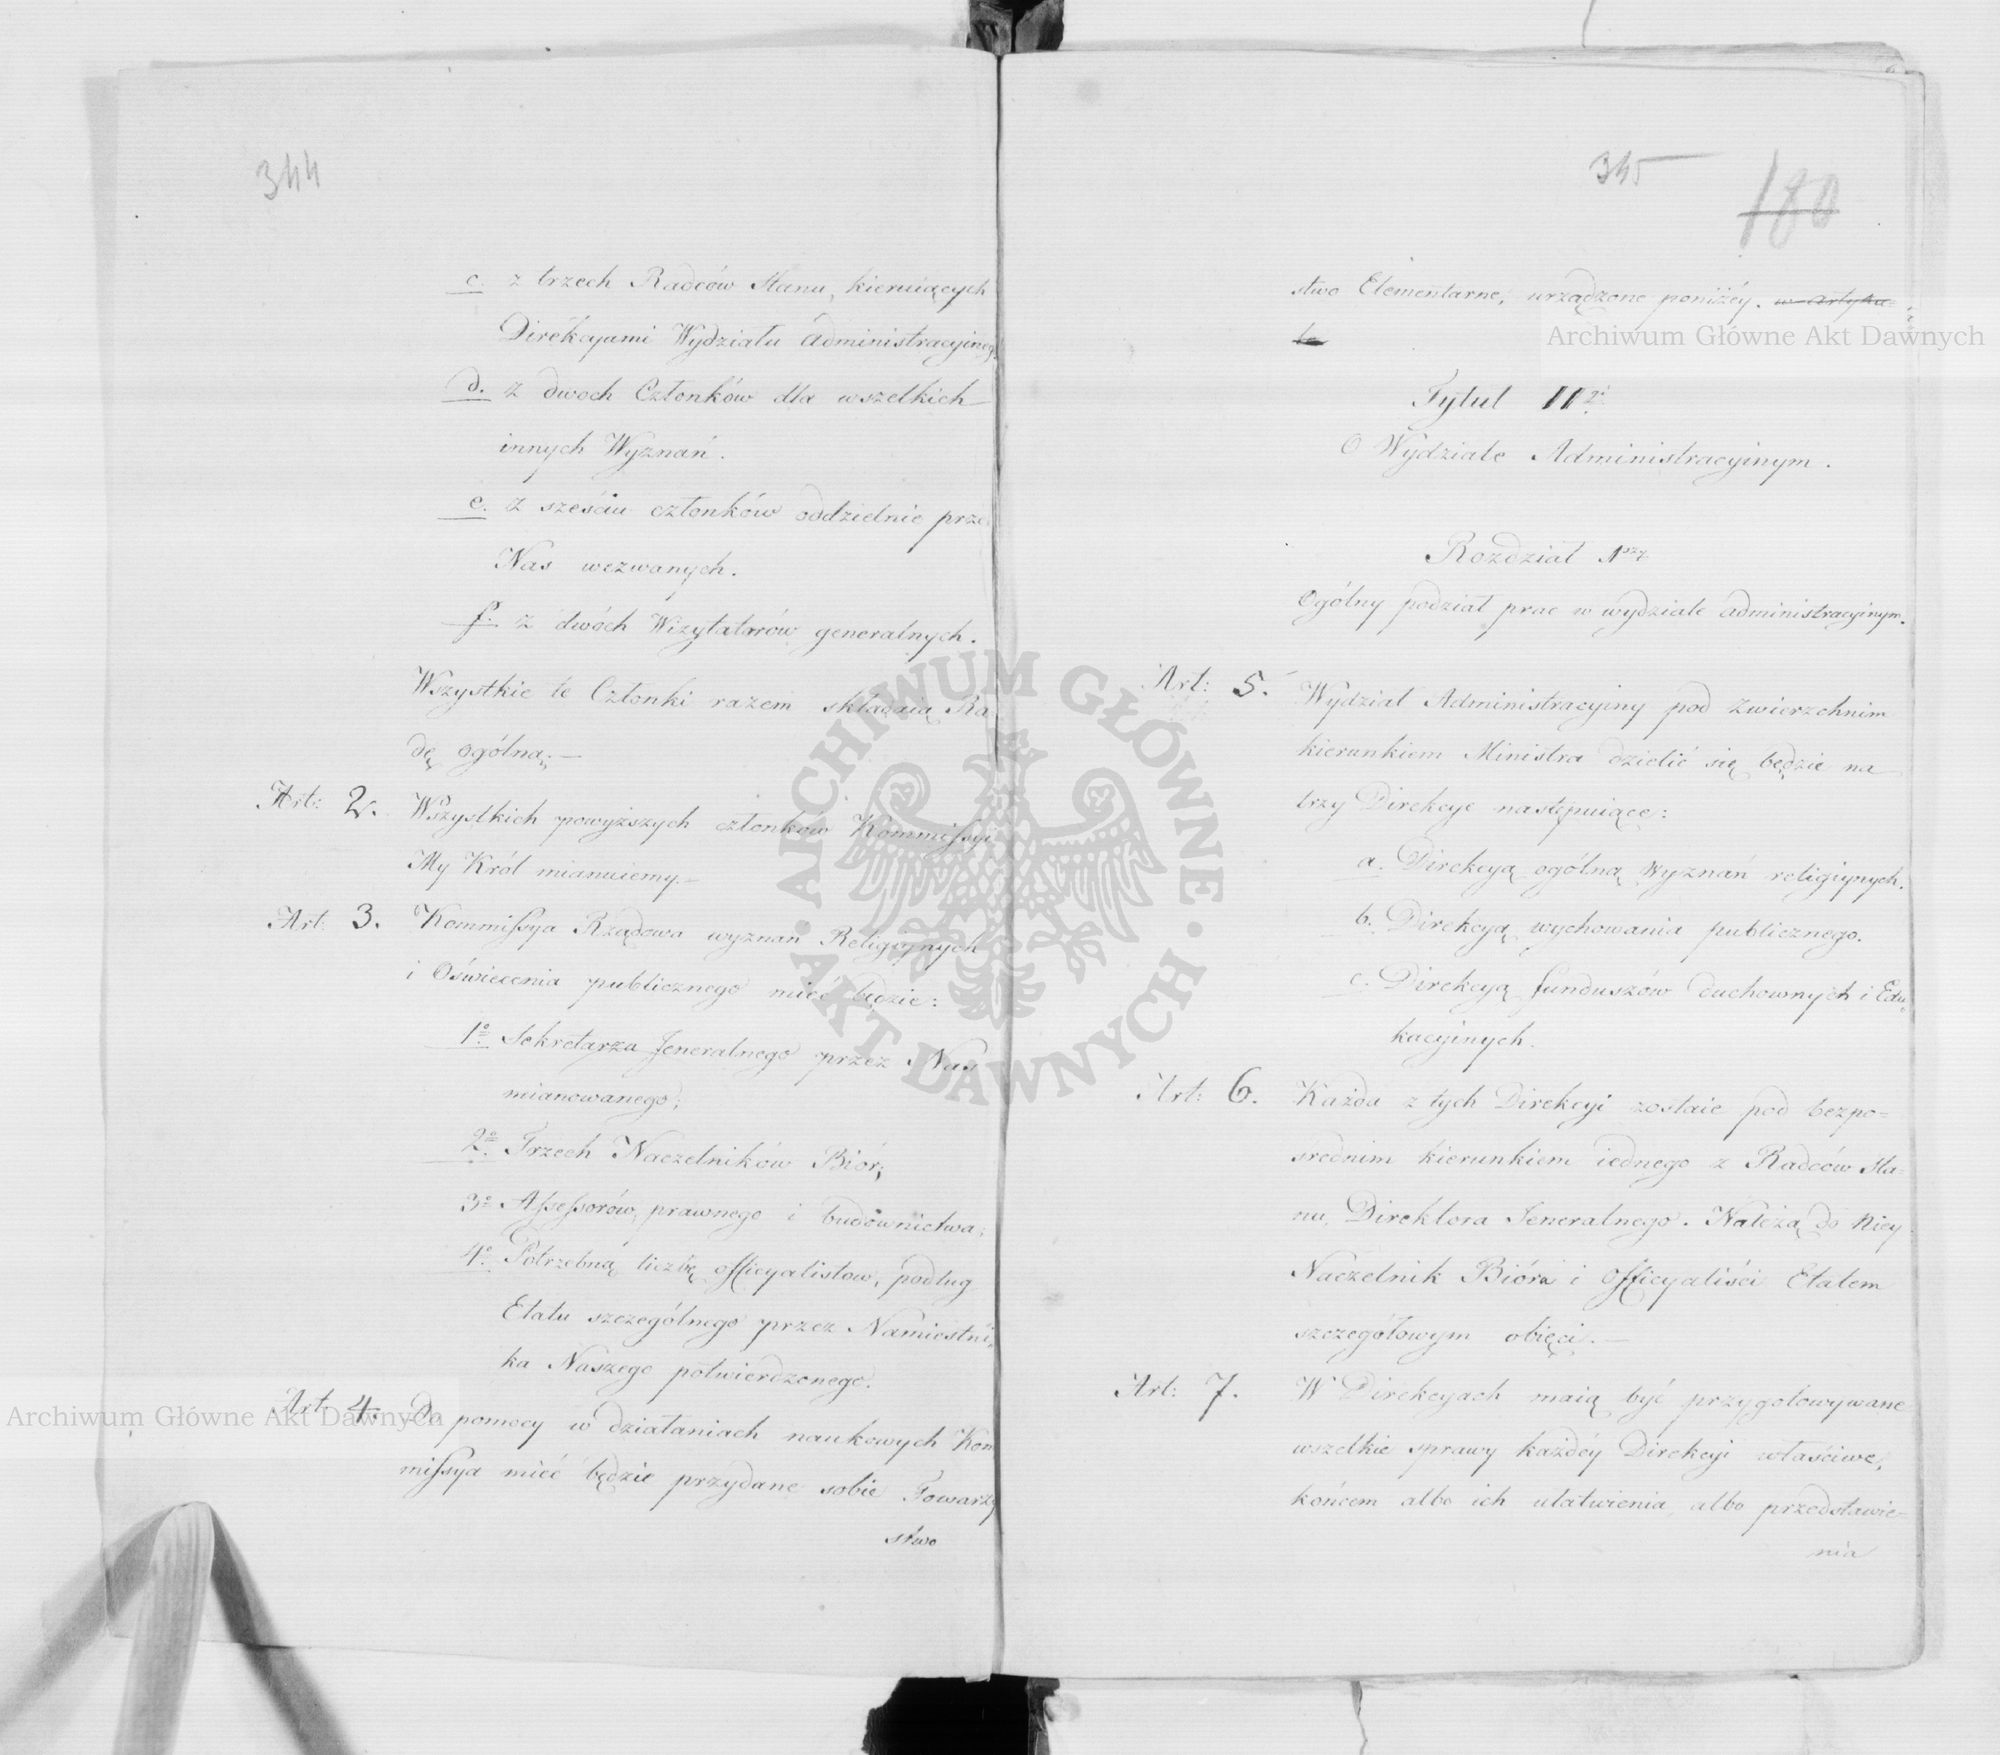 344
c. z trzech Radców Stanu, kieruiących
Direkcyami Wydziału administracyineg.
d. z dwoch Członków dla wszelkich
innych Wyznań.
e. z sześciu członków oddzielnie prze
Nas wezwanych.
f. z dwóch Wizytatorów generalnych.
Wszystkie te Członki razem składaią Ra
dę ogólną;—
Art: 2. Wszystkich powyższych członków Kommissyi
My Król mianuiemy.—
Art: 3. Kommissya Rządowa wyznań Religiynych
i Oświecenia publicznego mieć będzie:
1o Sekretarza Jeneralnego przez Nas
mianowanego;
2o Trzech Naczelników Biór;
3o Assessorów, prawnego i budownictwa;
4o Potrzebną liczbę officyalistow, podług
Etatu szczególnego przez Namiestni,
ka Naszego potwierdzonego.
Art: 4. Do pomocy w działaniach naukowych Kom
missya mieć będzie przydane sobie Towarzy
stwo
345
180
stwo Elementarne, urządzone poniżéy. w artyku=
le
Tytuł II 2i
O Wydziale Administracyinym.
Rozdział 1szy
Ogólny podział prac w wydziale administracyinym.
Art: 5. Wydział Administracyiny pod zwierzchnim
kierunkiem Ministra dzielić się będzie na
trzy Direkcye następuiące:
a. Direkcyą ogólną wyznań religiynych.
b. Direkcyą wychowania publicznego.
c. Direkcyą funduszów duchownych i Edu,
kacyinych.
Art: 6. Każda z tych Direkcyi zostaie pod bezpo=
średnim kierunkiem iednego z Radców Sta=
nu, Direktora Jeneralnego. Należą do niey
Naczelnik Bióra i Officyaliści Etatem
szczegółowym obięci.—
Art: 7. W Direkcyach maią być przygotowywane
wszelkie sprawy każdéy Direkcyi właściwe,
końcem albo ich ułatwienia, albo przedstawie-
nia
Archiwum Główne Akt Dawnych
Archiwum Główne Akt Dawnych
ARCHIWUM GŁÓWNE
AKT DAWNYCH